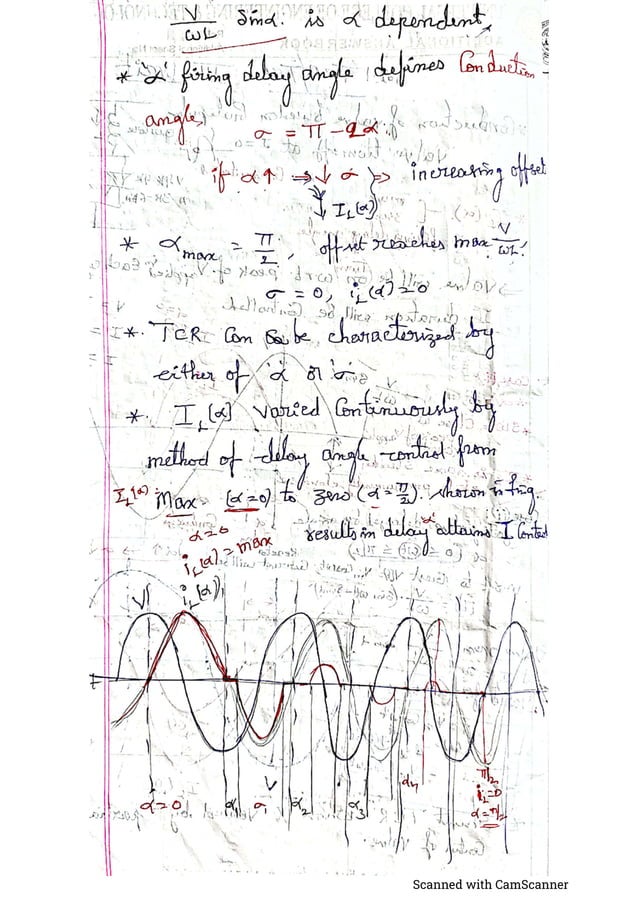 V/ωL Sinα. is α dependent,
* 'α' firing delay angle, defines Conduction
angle,
σ = π - 2α
if α↑ ⇒ ↓ σ ⇒ increasing offset
↓ I_L(α)
* α_max = π/2, offset reaches max V/ωL.
σ = 0, i_L(α) = 0
*. TCR Can be characterized by
either of 'α' or 'σ'
*. I_L(α) varied Continuously by
method of delay angle control from
I_L(α) Max (α=0) to zero (α = π/2). shown in fig.
α=0
results in delay 'α' attains I Control
i_L(α) = max
V
i_L(α)
α=0 α₁ σ₁ V α₂ α₃ α₄
π/2
i_L=0
α=π/2
Scanned with CamScanner